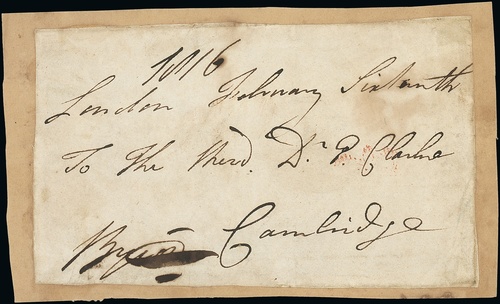 1816
London February Sixteenth
To the Revd. Dr. P. Clarke
Byron Cambridge